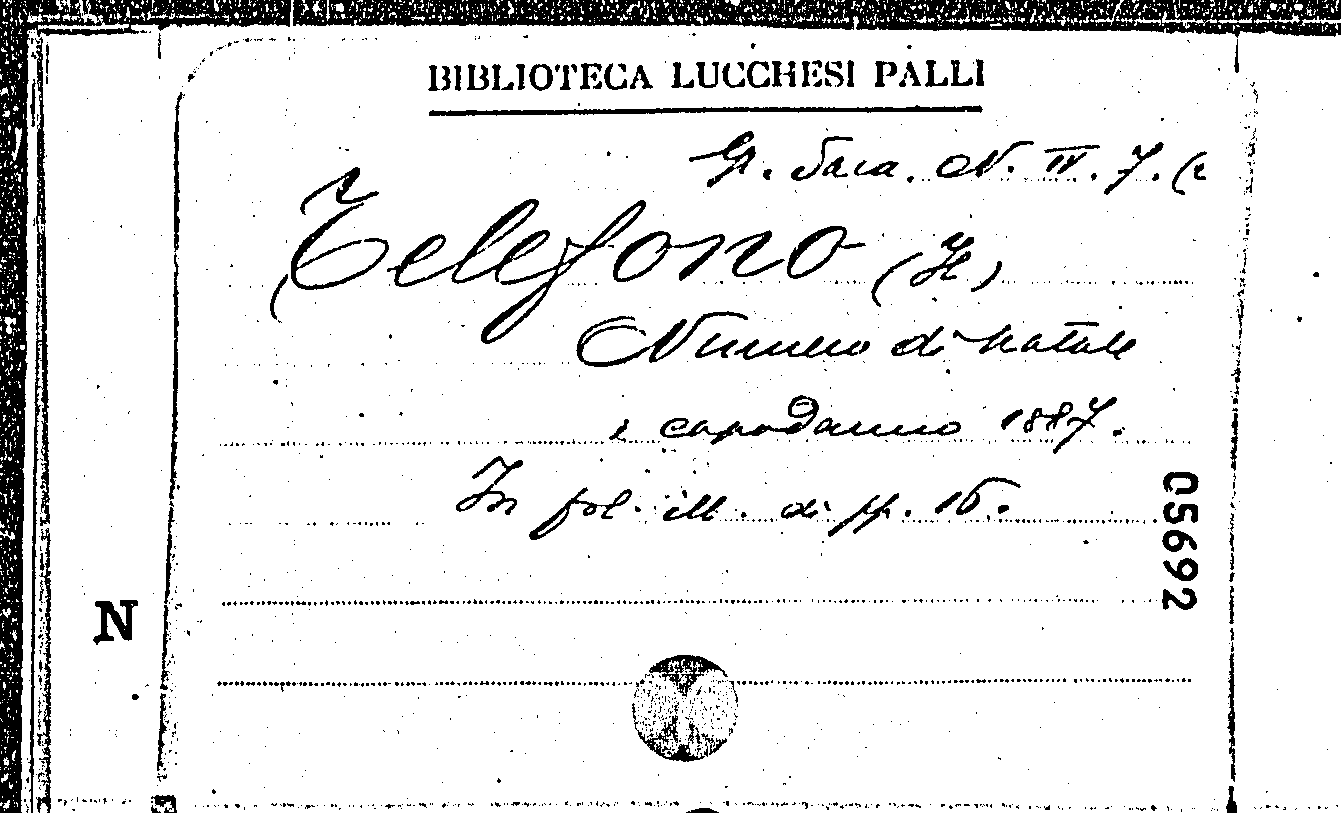 BIBLIOTECA LUCCHESI PALLI
Gr. Sala. N. IV. 7. (2
Telefono (Il)
Numero di natale
e capodanno 1887.
In fol. ill. di pp. 16.
05692
N